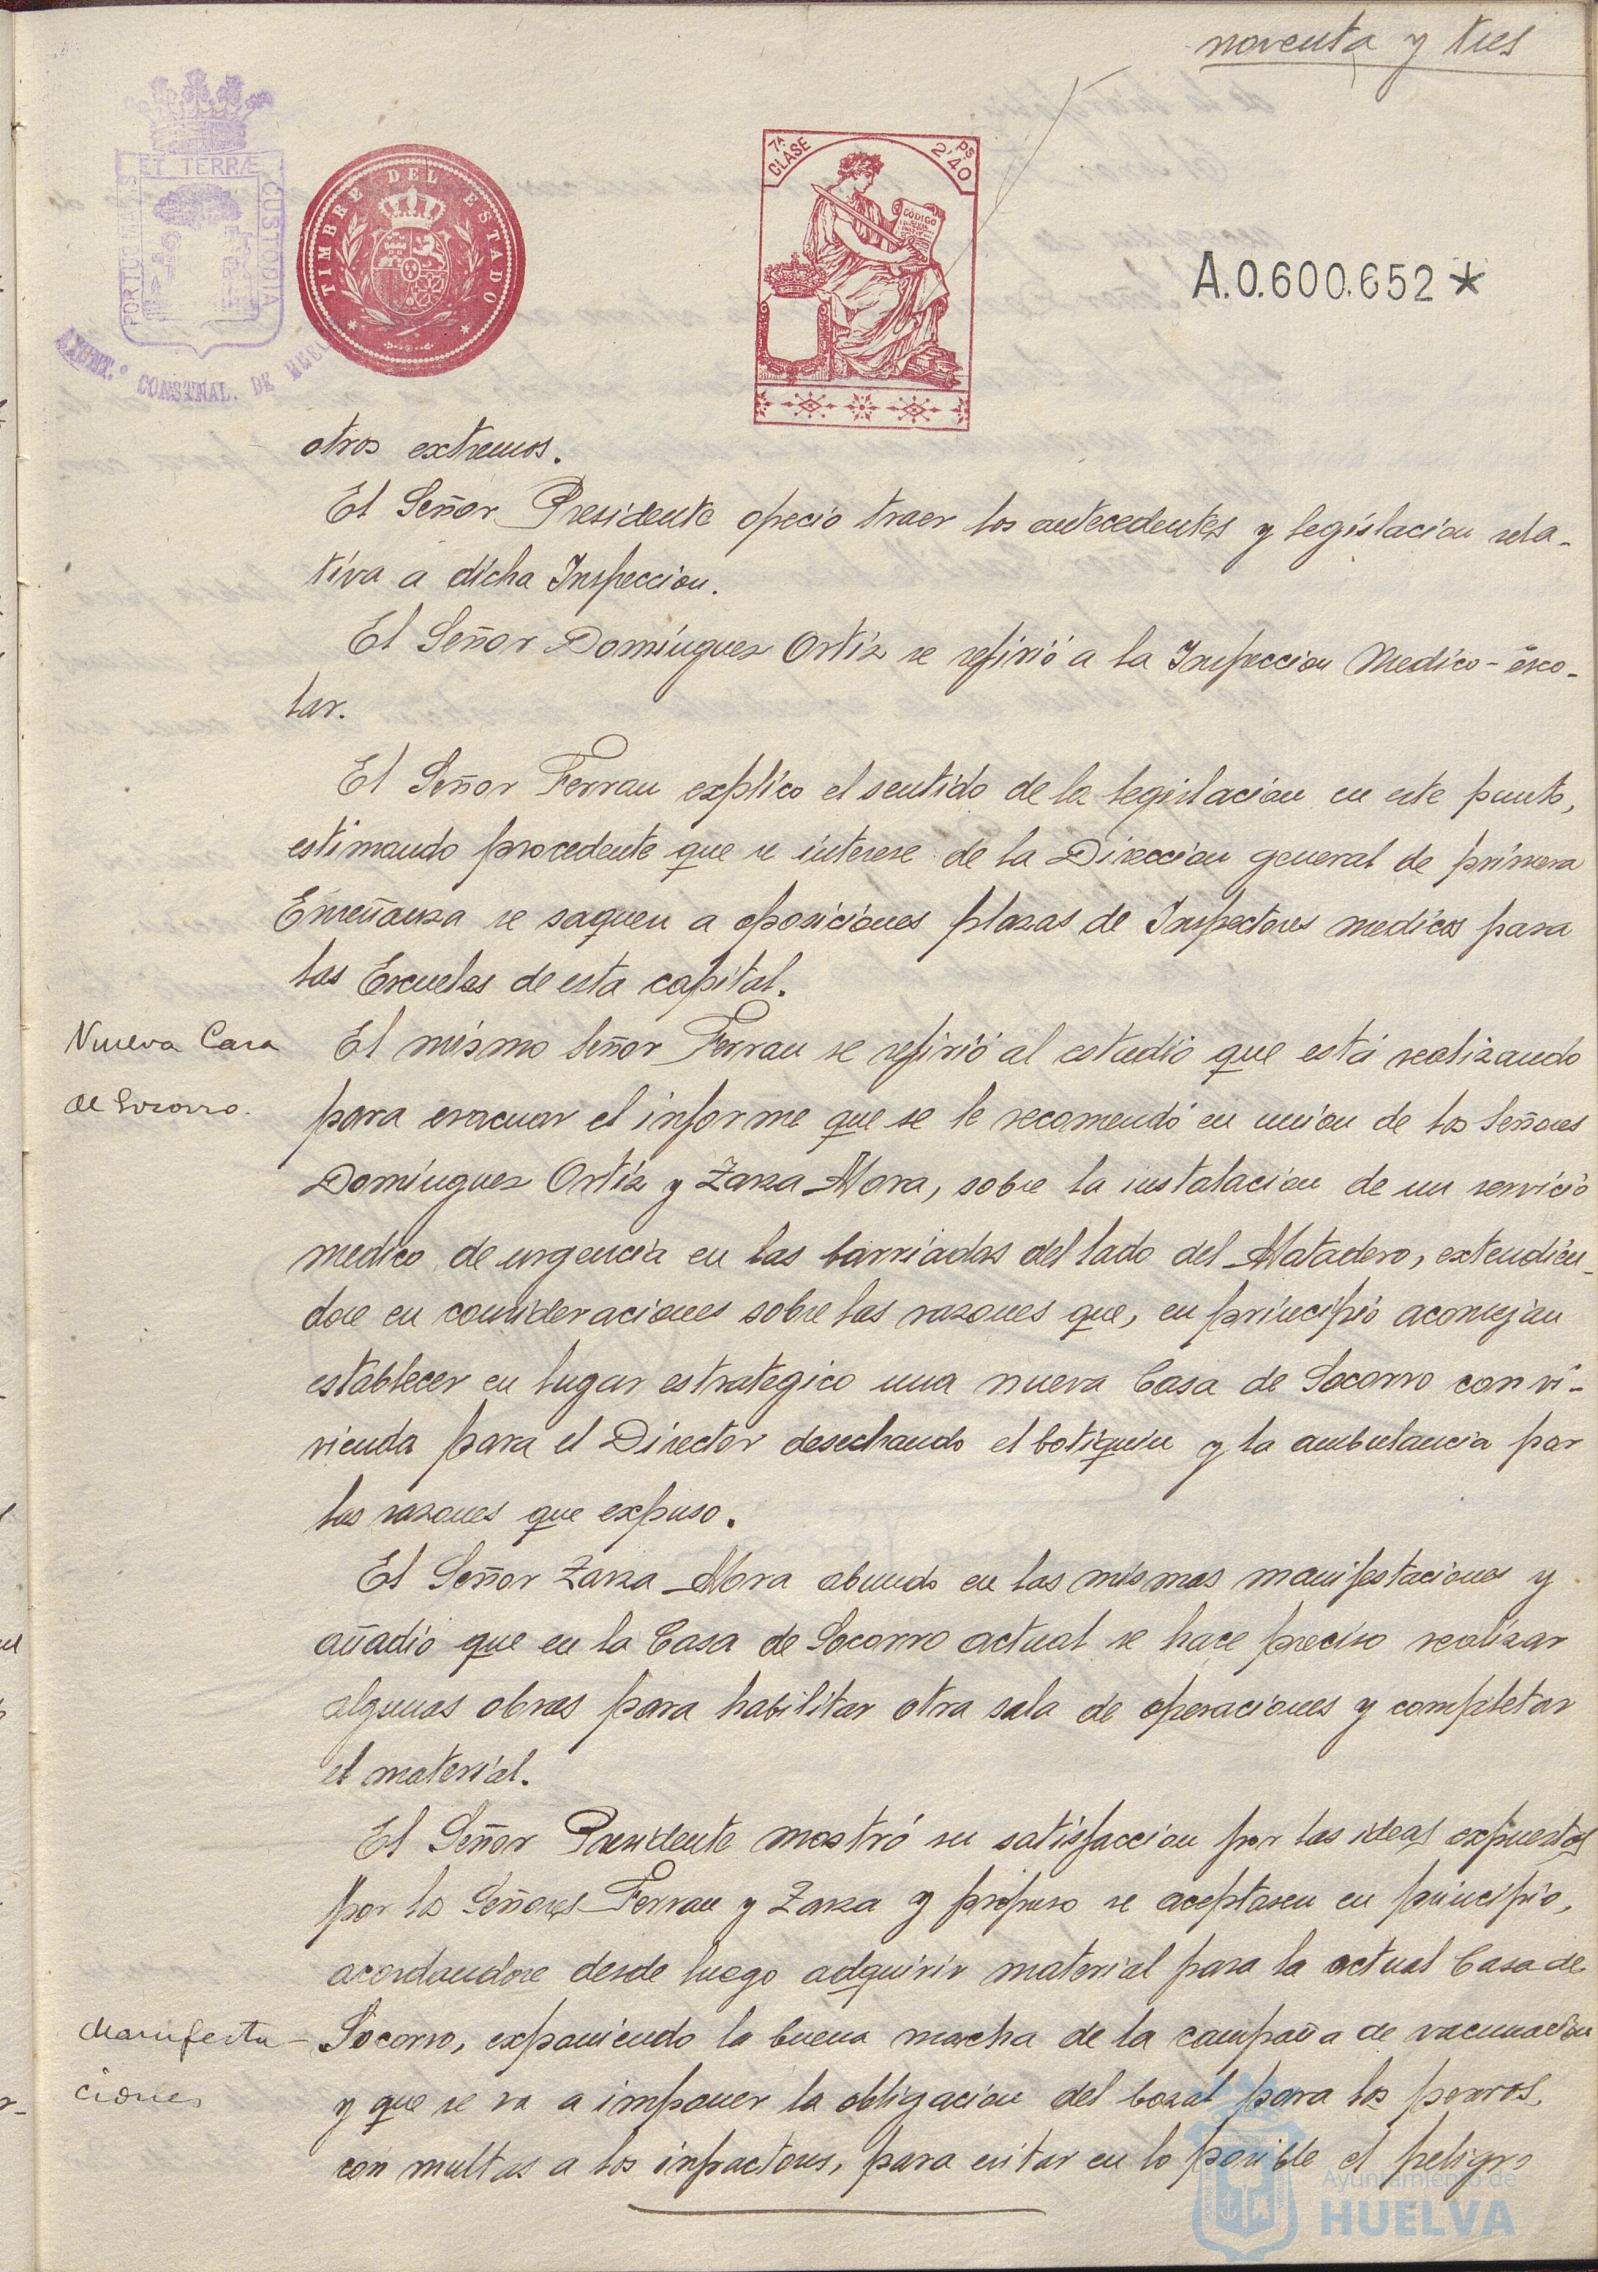 noventa y tres
PORTUS MARIS ET TERRÆ CUSTODIA
AYUNT.º CONSTNAL. DE HUEL
TIMBRE DEL ESTADO
7ª CLASE
2'40 PS
CÓDIGO
A.0.600.652*
otros extremos.
El Señor Presidente ofrecio traer los antecedentes y legislacion rela-
tiva a dicha Inspeccion.
El Señor Dominguez Ortiz se refirió a la Inspeccion Medico-esco-
lar.
El Señor Terrau explico el sentido de la legislacion en este punto,
estimando procedente que se interese de la Direccion general de primera
Enseñanza se saquen a oposiciones plazas de Inspectores medicos para
las Escuelas de esta capital.
Nueva Casa
de Socorro.
El mismo Señor Terrau se refirió al estudio que está realizando
para evacuar el informe que se le recomendó en union de los Señores
Dominguez Ortiz y Zarza Mora, sobre la instalacion de un servicio
medico de urgencia en las barriadas del lado del Matadero, extendién-
dose en consideraciones sobre las razones que, en principio aconsejan
establecer en lugar estrategico una nueva Casa de Socorro con vi-
vienda para el Director desechando el botiquin y la ambulancia por
las razones que expuso.
El Señor Zarza Mora abundo en las mismas manifestaciones y
añadió que en la Casa de Socorro actual se hace preciso realizar
algunas obras para habilitar otra sala de operaciones y completar
el material.
El Señor Presidente mostró su satisfaccion por las ideas expuestas
por los Señores Terrau y Zarza y propuso se aceptasen en principio,
acordandose desde luego adquirir material para la actual Casa de
Manifesta-
ciones
Socorro, exponiendo la buena marcha de la campaña de vacunacion
y que se va a imponer la obligacion del bozal para los perros,
con multas a los infractores, para evitar en lo posible el peligro
Ayuntamiento de
HUELVA